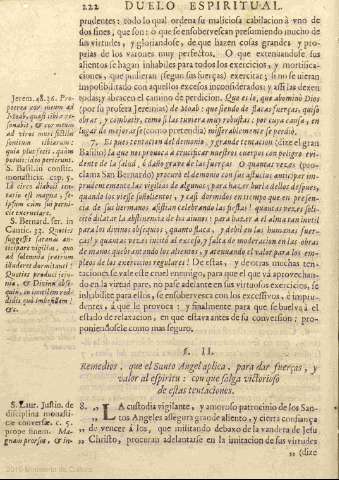 222 DUELO ESPIRITUAL.
prudentes: todo lo qual ordena su maliciosa cabilacion à vno de
dos fines, que son: ò que se ensobervescan presumiendo mucho de
sus virtudes, y gloriandose, de que hazen cosas grandes y pro-
prias de los varones muy perfectos, O que extenuandose sus
alientos se hagan inhabiles para todos los exercicios, y mortifica-
ciones, que pudieran (segun sus fuerzas) exercitar; si no se vieran
impossibilitado con aquellos excesos inconsiderados: y assi las dexen
todas, y abracen el camino de perdicion. Que es lo, que abominò Dios
(por su profeta Jeremias) de Moab: que siendo de flacas fuerzas, quiso
obrar, y combatir, como si las tuviera muy robustas: por cuya causa, en
lugar de mejorarse (como pretendia) miserablemente se perdiò.
7. Es pues tentacion del demonio, y grande tentacion (dize el gran
Basilio) la que nos provoca à crucificar nuestros cuerpos con peligro evi-
dente de la salud, ò daño grave de las fuerzas. O quantas vezes (pro-
clama San Bernardo) procurò el demonio con sus astucias anticipar im-
prudentemente las vigilias de algunos; para hazer burla dellos despues,
quando los viesse soñolientos, y casi dormidos en tiempo que en presen-
cia de sus hermanos assistian celebrando las fiestas! quantas vezes soli-
citò dilatar la abstinencia de los aiunos: para hazer à el alma tan inutil
para los divinos obsequios, quanto flaca, y debil en las humanas fuer-
ças! y quantas vezes incitò al excesso, y falta de moderacion en las obras
de manos quebrantando los alientos, y atenuando el valor para los em-
pleos de los exercicios regulares! De estas, y de otras muchas ten-
taciones se vale este cruel enemigo, para que el que và aprovechan-
do en la virtud pare, no pase adelante en sus virtuosos exercicios, se
inhabilite para ellos, se ensobervesca con los excessivos, è impru-
dentes, à que le provoca: y finalmente para que se buelva à el
estado de relaxacion, en que estava antes de su conversion: pro-
poniendosele como mas seguro.
Jerem. 48. 36. Pro-
pterea cor meum ad
Moab, quasi tibia re-
sonabit, & cor meum
ad viros muri fictilis
sonitum tibiarum:
quia plus fecit, quàm
potuit: ideo perierunt.
S. Basil. in constit.
monastic. cap. 5.
S. Bernard. ser. in
Cantic. 33.
§. II.
Remedios, que el Santo Angel aplica, para dar fuerças, y
valor al espiritu: con que salga victorioso
de estas tentaciones.
S. Laur. Justin. de
disciplina monasti-
cæ conversæ. c. 5.
prope finem. Ma-
gnam prorsus, & in-
8. „ LA custodia vigilante, y amoroso patrocinio de los San-
„ tos Angeles assegura grande aliento, y cierta confiança
„ de vencer á los, que militando debaxo de la vandera de Jesu
„ Christo, procuran adelantarse en la imitacion de sus virtudes
„ (dize
2010 Ministerio de Cultura